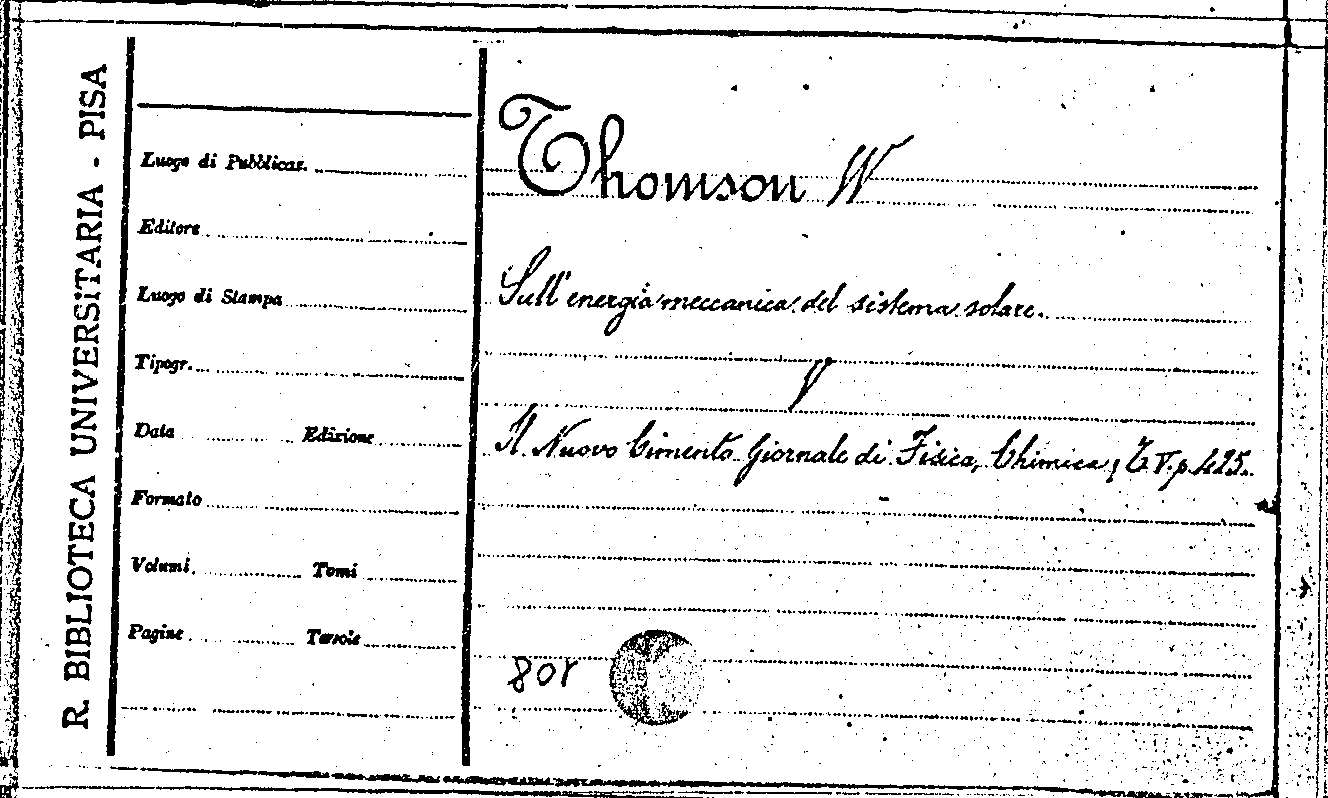 R. BIBLIOTECA UNIVERSITARIA - PISA
Luogo di Pubblicaz.
Editore
Luogo di Stampa
Tipogr.
Data Edizione
Formato
Volumi Tomi
Pagine Tavole
Thomson W
Sull'energia meccanica del sistema solare.
Il Nuovo Cimento Giornale di Fisica, Chimica, T. V. p. 425.